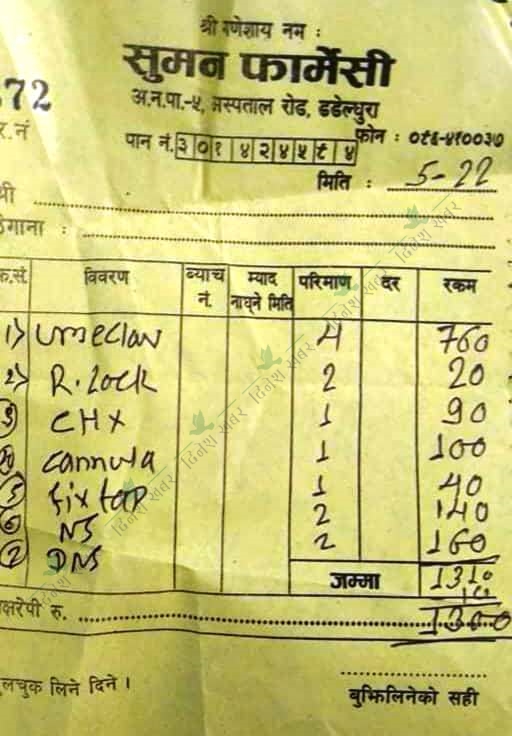 श्री गणेशाय नम :
सुमन फार्मेसी
अ.न.पा.-५, अस्पताल रोड, डडेल्धुरा
72
र.नं
फोन : ०९६-४१००३७
पान नं. ३ ० १ ४ २ ४ ५ ९ ४
मिति : 5-22
श्री
ठेगाना :
क्र.सं. विवरण ब्याच नं. म्याद नाघ्ने मिति परिमाण दर रकम
1) Umeclav 4 760
2) R. Lock 2 20
3 CHX 1 90
4 cannula 1 100
5 fix tap 1 40
6 NS 2 140
7 DNS 2 160
जम्मा 1310
10
क्षरेपी रु. 1300
लचुक लिने दिने ।
बुझिलिनेको सही
दिनेश खबर
दिनेश खबर
दिनेश खबर
दिनेश खबर
दिनेश खबर